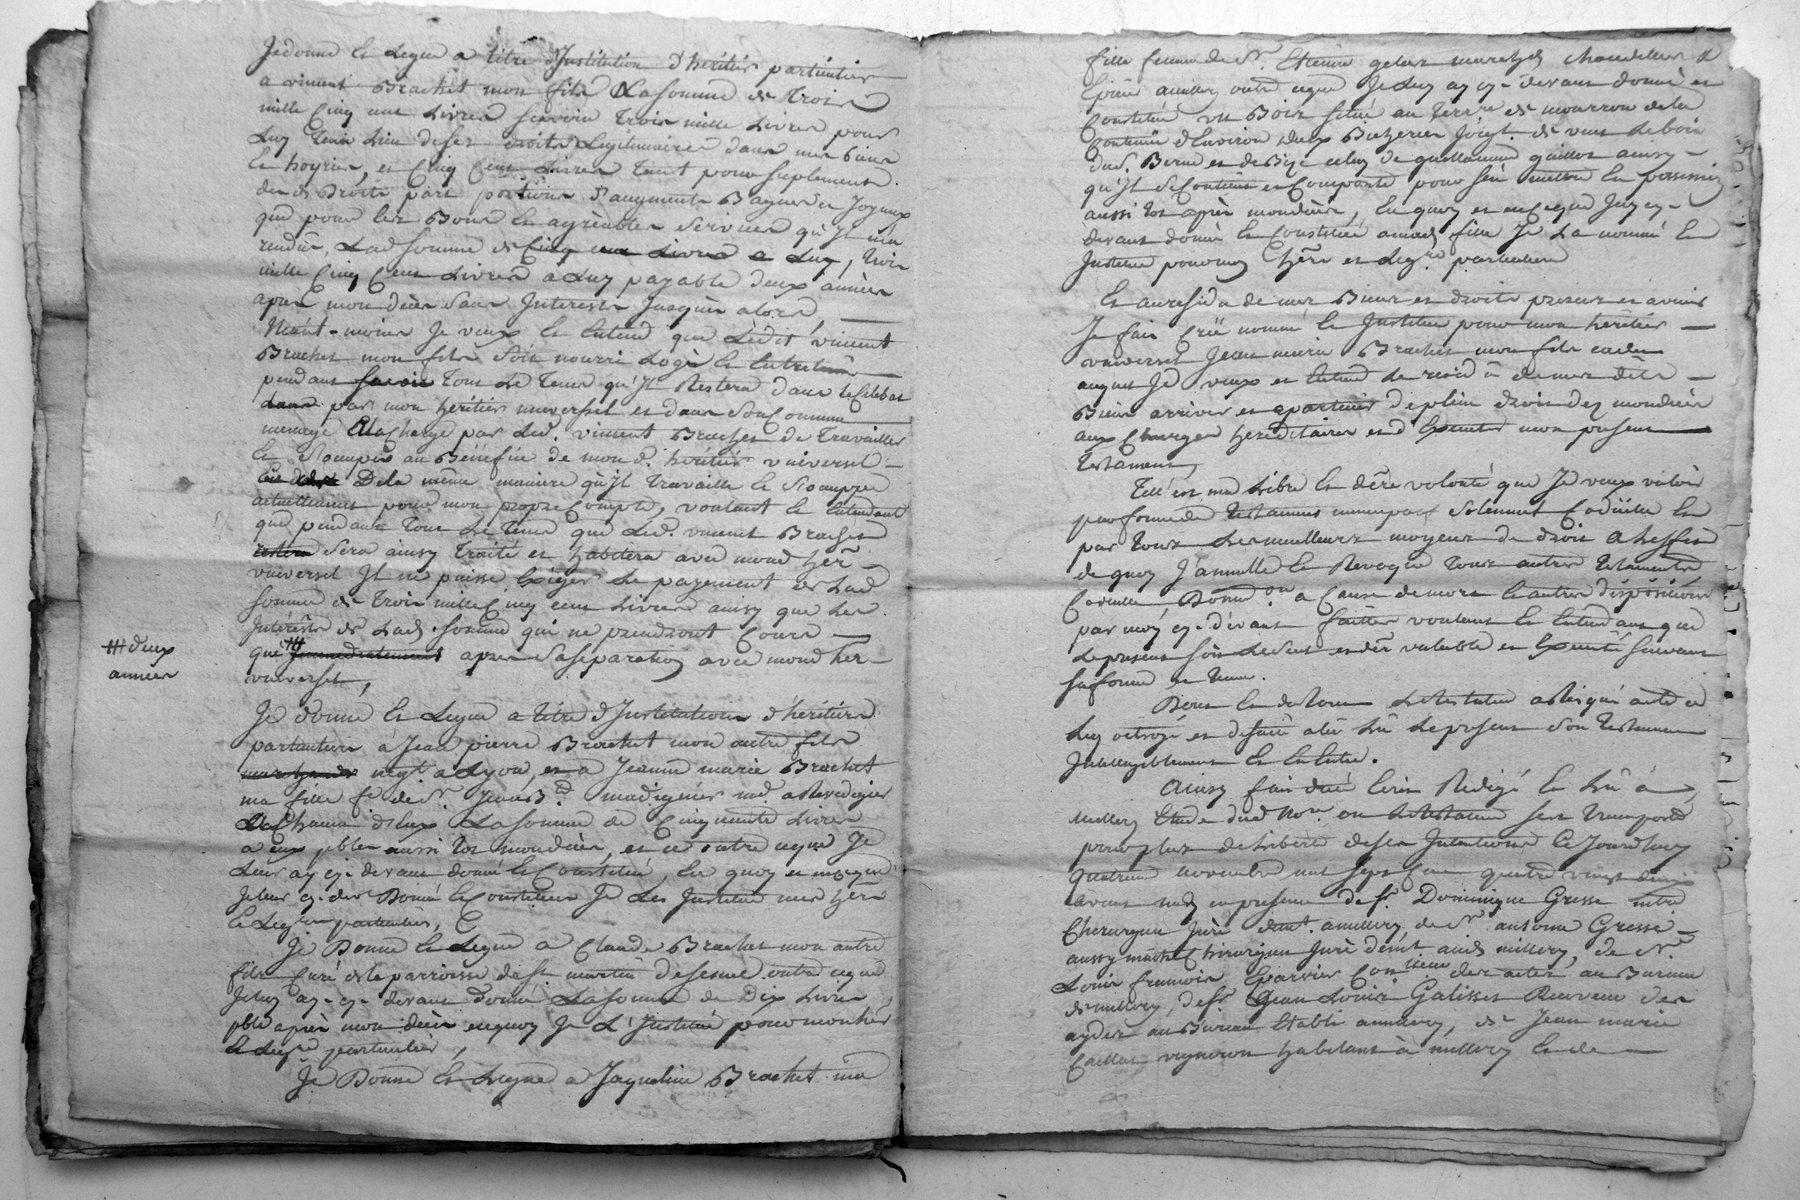 Je donne et Legue a titre d'Institution d'héritier particulier
a vincent Brachet mon fils La somme de Trois
mille Cinq cent Livres scavoir Trois mille Livres pour
Luy tenir Lieu de ses droits Legitimaires dans mes biens
et hoyries, et Cinq Cent Livres tant pour suplement
des d. Droits part portion d'augment Bagues et Joyaux
que pour les Bons et agréables services qu'Il m'a
rendûs, Lad. somme de Cinq cent Livres a Luy, trois
mille Cinq Cent Livres a Luy payable deux années
apres mon décès sans Interests jusques alors
Néant-moins Je veux et Entend que Ledit vincent
Brachet mon fils soit nourri Logé et Entretenu
pendant tout Le Tems qu'Il Restera dans le Celibat
par mon héritier universel et dans son Commun
menage a la charge par Led. vincent Brachet de Travailler
et s'occuper au Benefice de mon d. héritier universel
De la même maniere qu'Il travaille et s'occupe
actuellement pour mon propre Compte, voulant et Entendant
que pendant tout Le Tems que Led. vincent Brachet
sera ainsy Traité et habitera avec mond. her.
universel Il ne puisse Exiger Le payement de Lad.
somme de Trois mille Cinq cent Livres ainsy que Les
Intérêts de Lad. somme qui ne prendront Cours
que ## Immediatement apres sa separation avec mond. her.
universel,
## deux
années
Je donne et Legue a titre d'Institution d'héritiers
particuliers à Jean pierre Brachet mon autre fils
marchand negt a Lyon, et a Jeanne marie Brachet
ma fille fe de Sr.
a Chacun d'eux La somme de Cinquante Livres
a eux pble aussi tot mon décès, et ce outre ceque Je
Leur ay cy-devant donné et Constitué, En quoy et en ceque
Je leur cy-devt Donné et Constitué Je Les Institue mes hers
et Legres particuliers,
Je Donne et Legue a Claude Brachet mon autre
fils Curé de la parroisse de St martin outre ceque
Je luy ay-cy-devant donné La somme de Dix Livres
pble après mon décès en quoy Je L'Institue pour mon her
et Legre particulier,
Je Donne et Legue a Jaqueline Brachet ma
fille femme de Sr. Etienne marchd chandellier
outre ceque Je Luy ay cy-devant donné et
Constitué un Bois situé au Terre de mourron de la
Contenue d'Environ deux Bicherées Joigt de vent Le bois
dud. Berne et de Bize celuy de guillaume guillot ainsy
qu'Il se Contient et Comporte pour s'en mettre en possession
aussi tot après mon décès, En quoy et en ceque J'ay cy-
devant donné et Constitué a mad. fille Je La nomme et
Institue pour ma here et Legre particuliere
Et au residu de mes Biens et droits presents et avenir
Je fais Créé nomme et Institue pour mon héritier
universel Jean marie Brachet mon fils
auquel Je veux et Entend Le residu de mes dits
Biens arriver et apartenir de plein droit dez mon décès
aux Charges hereditaires et d'Executer mon present
testament
Tell'est ma Libre et dere volonté que Je veux valoir
par forme de testament nuncupatif solennel Codicille et
par tous Les meilleurs moyens de droit a L'effet
de quoy J'annulle et Revoque tous autres testaments
Codicille Donnaon a Cause de mort et autres dispositions
par moy cy-devant faittes voulant et Entendant que
Le present soit Le seul et der valable et Executé suivant
sa forme et teneur.
Dont et du tout Le testateur a Requis acte a
Luy octroyé et de suitte a été Lû Le present son testament
Intelligiblement et En Entier.
Ainsy fait dicté Ecrit Redigé et Lû à
millery Etude dud. Nore ou Le testateur s'est transporté
pour plus de Liberté de ses Intentions Ce Jourdhuy
quatrieme novembre mil sept Cent quatre vingt dix
avant midy en presence de Sr. Dominique Gresse
Chirurgien Juré demt. a millery, de Sr antoine Gresse
aussy maitre Chirurgien Juré demt aud. millery, de Sr.
Louis francois Epavier Commissaire des actes au Bureau
de millery, de Sr Jean Louis Galisset Receveur des
aydes au Bureau Etabli a millery, de Jean marie
Caillot vigneron habitant à millery et de